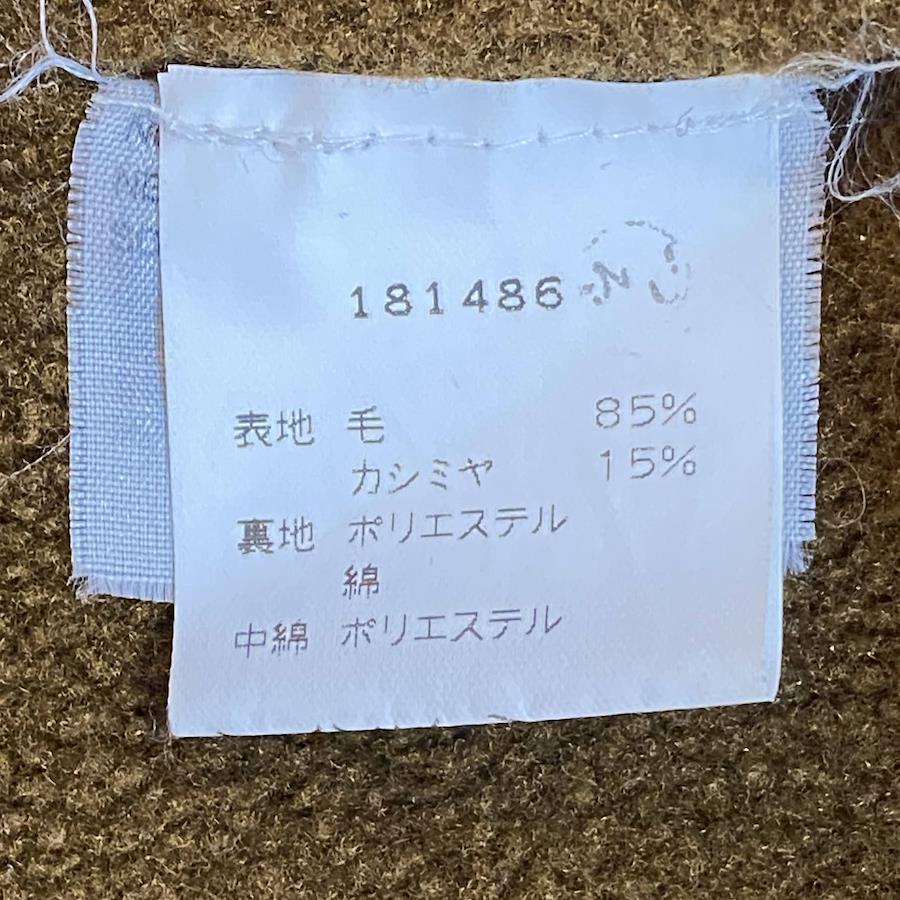 181486
表地 毛 85%
カシミヤ 15%
裏地 ポリエステル
綿
中綿 ポリエステル